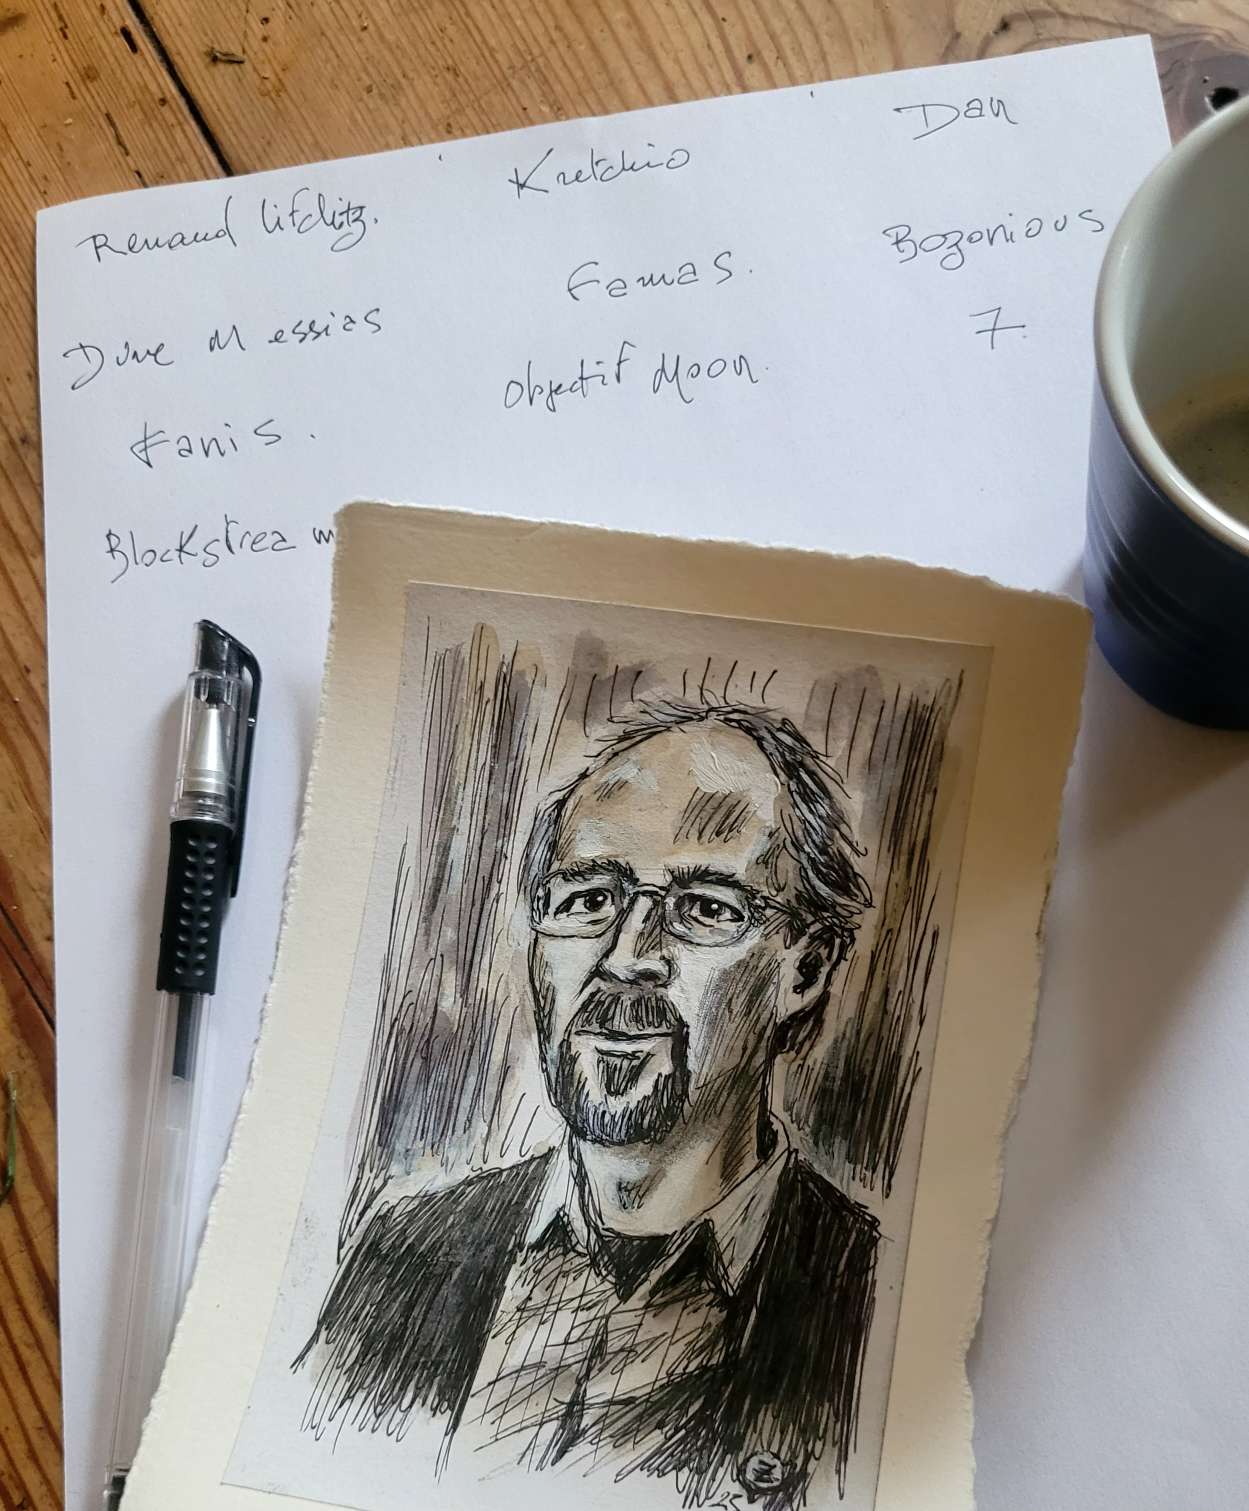 Renaud Lifchitz.
Dune Messias
Fanis.
Blockstream
Kretchio
Famas.
Objectif Moon.
Dan
Bozonious
7.
25